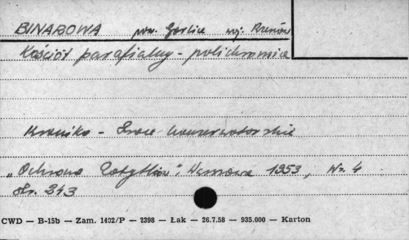 BINAROWA pow. Gorlice woj. Rzeszów
Kościół parafialny - polichromia
Kronika - Prace konserwatorskie
„Ochrona Zabytków", Warszawa 1953, Nr. 4
str. 243
CWD — B-15b — Zam. 1422/P — 2398 — Łak — 26.7.58 — 935.000 — Karton